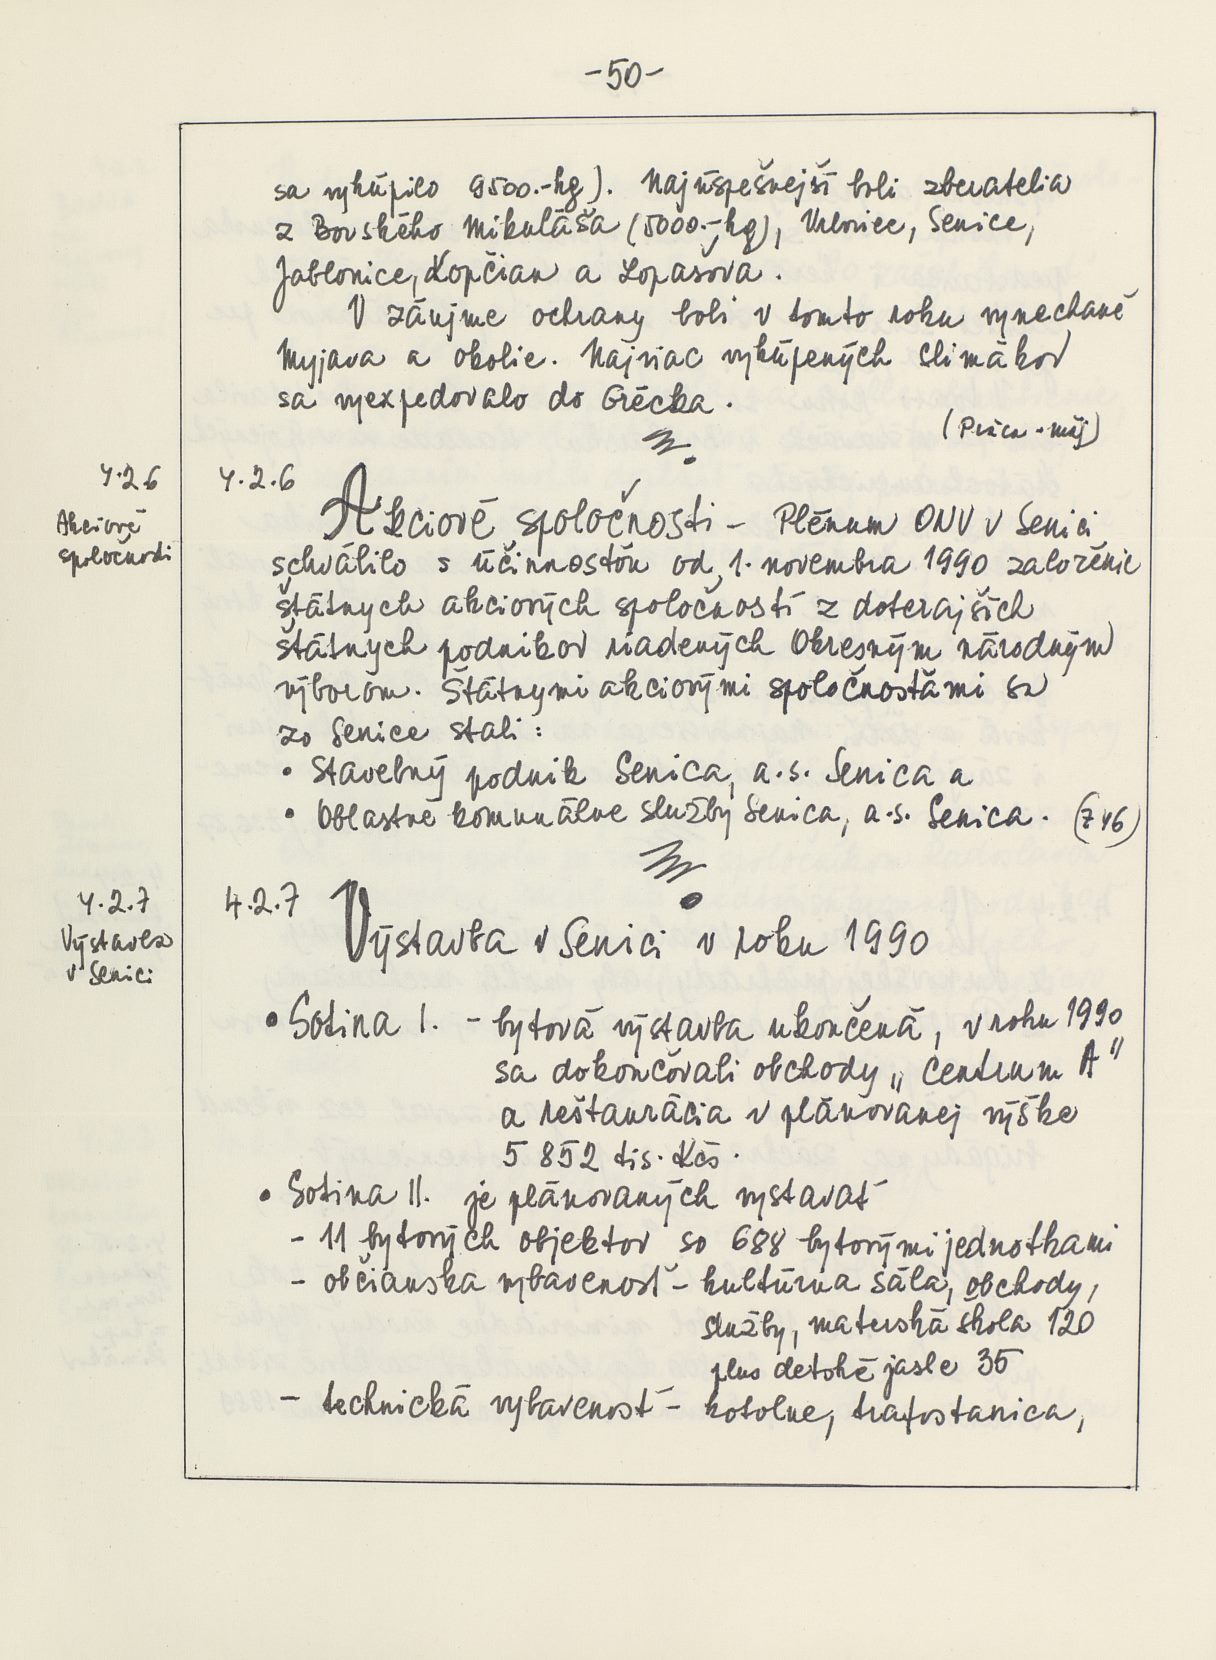 -50-
sa vykúpilo 9500.-kg). Najúspešnejší boli zberatelia
z Borského Mikuláša (5000.-kg), Vrboviec, Senice,
Jablonice, Kopčian a Lopašova.
V záujme ochrany boli v tomto roku vynechané
Myjava a okolie. Najviac vykúpených slimákov
sa vyexpedovalo do Grécka.
(Práca - máj)
4.2.6
Akciové
spoločnosti
4.2.6
Akciové spoločnosti - Plénum ONV v Senici
schválilo s účinnosťou od 1. novembra 1990 založenie
štátnych akciových spoločností z doterajších
štátnych podnikov riadených Okresným národným
výborom. Štátnymi akciovými spoločnosťami sa
zo Senice stali:
• Stavebný podnik Senica, a.s. Senica a
• Oblastné komunálne služby Senica, a.s. Senica.
4.2.7
Výstavba
v Senici
4.2.7
Výstavba v Senici v roku 1990
• Sotina I. - bytová výstavba ukončená, v roku 1990
sa dokončovali obchody „Centrum A"
a reštaurácia v plánovanej výške
5 852 tis. Kčs.
• Sotina II. je plánovaných vystavať
- 11 bytových objektov so 688 bytovými jednotkami
- občianska vybavenosť - kultúrna sála, obchody,
služby, materská škola 120
plus detské jasle 35
- technická vybavenosť - kotolne, trafostanica,